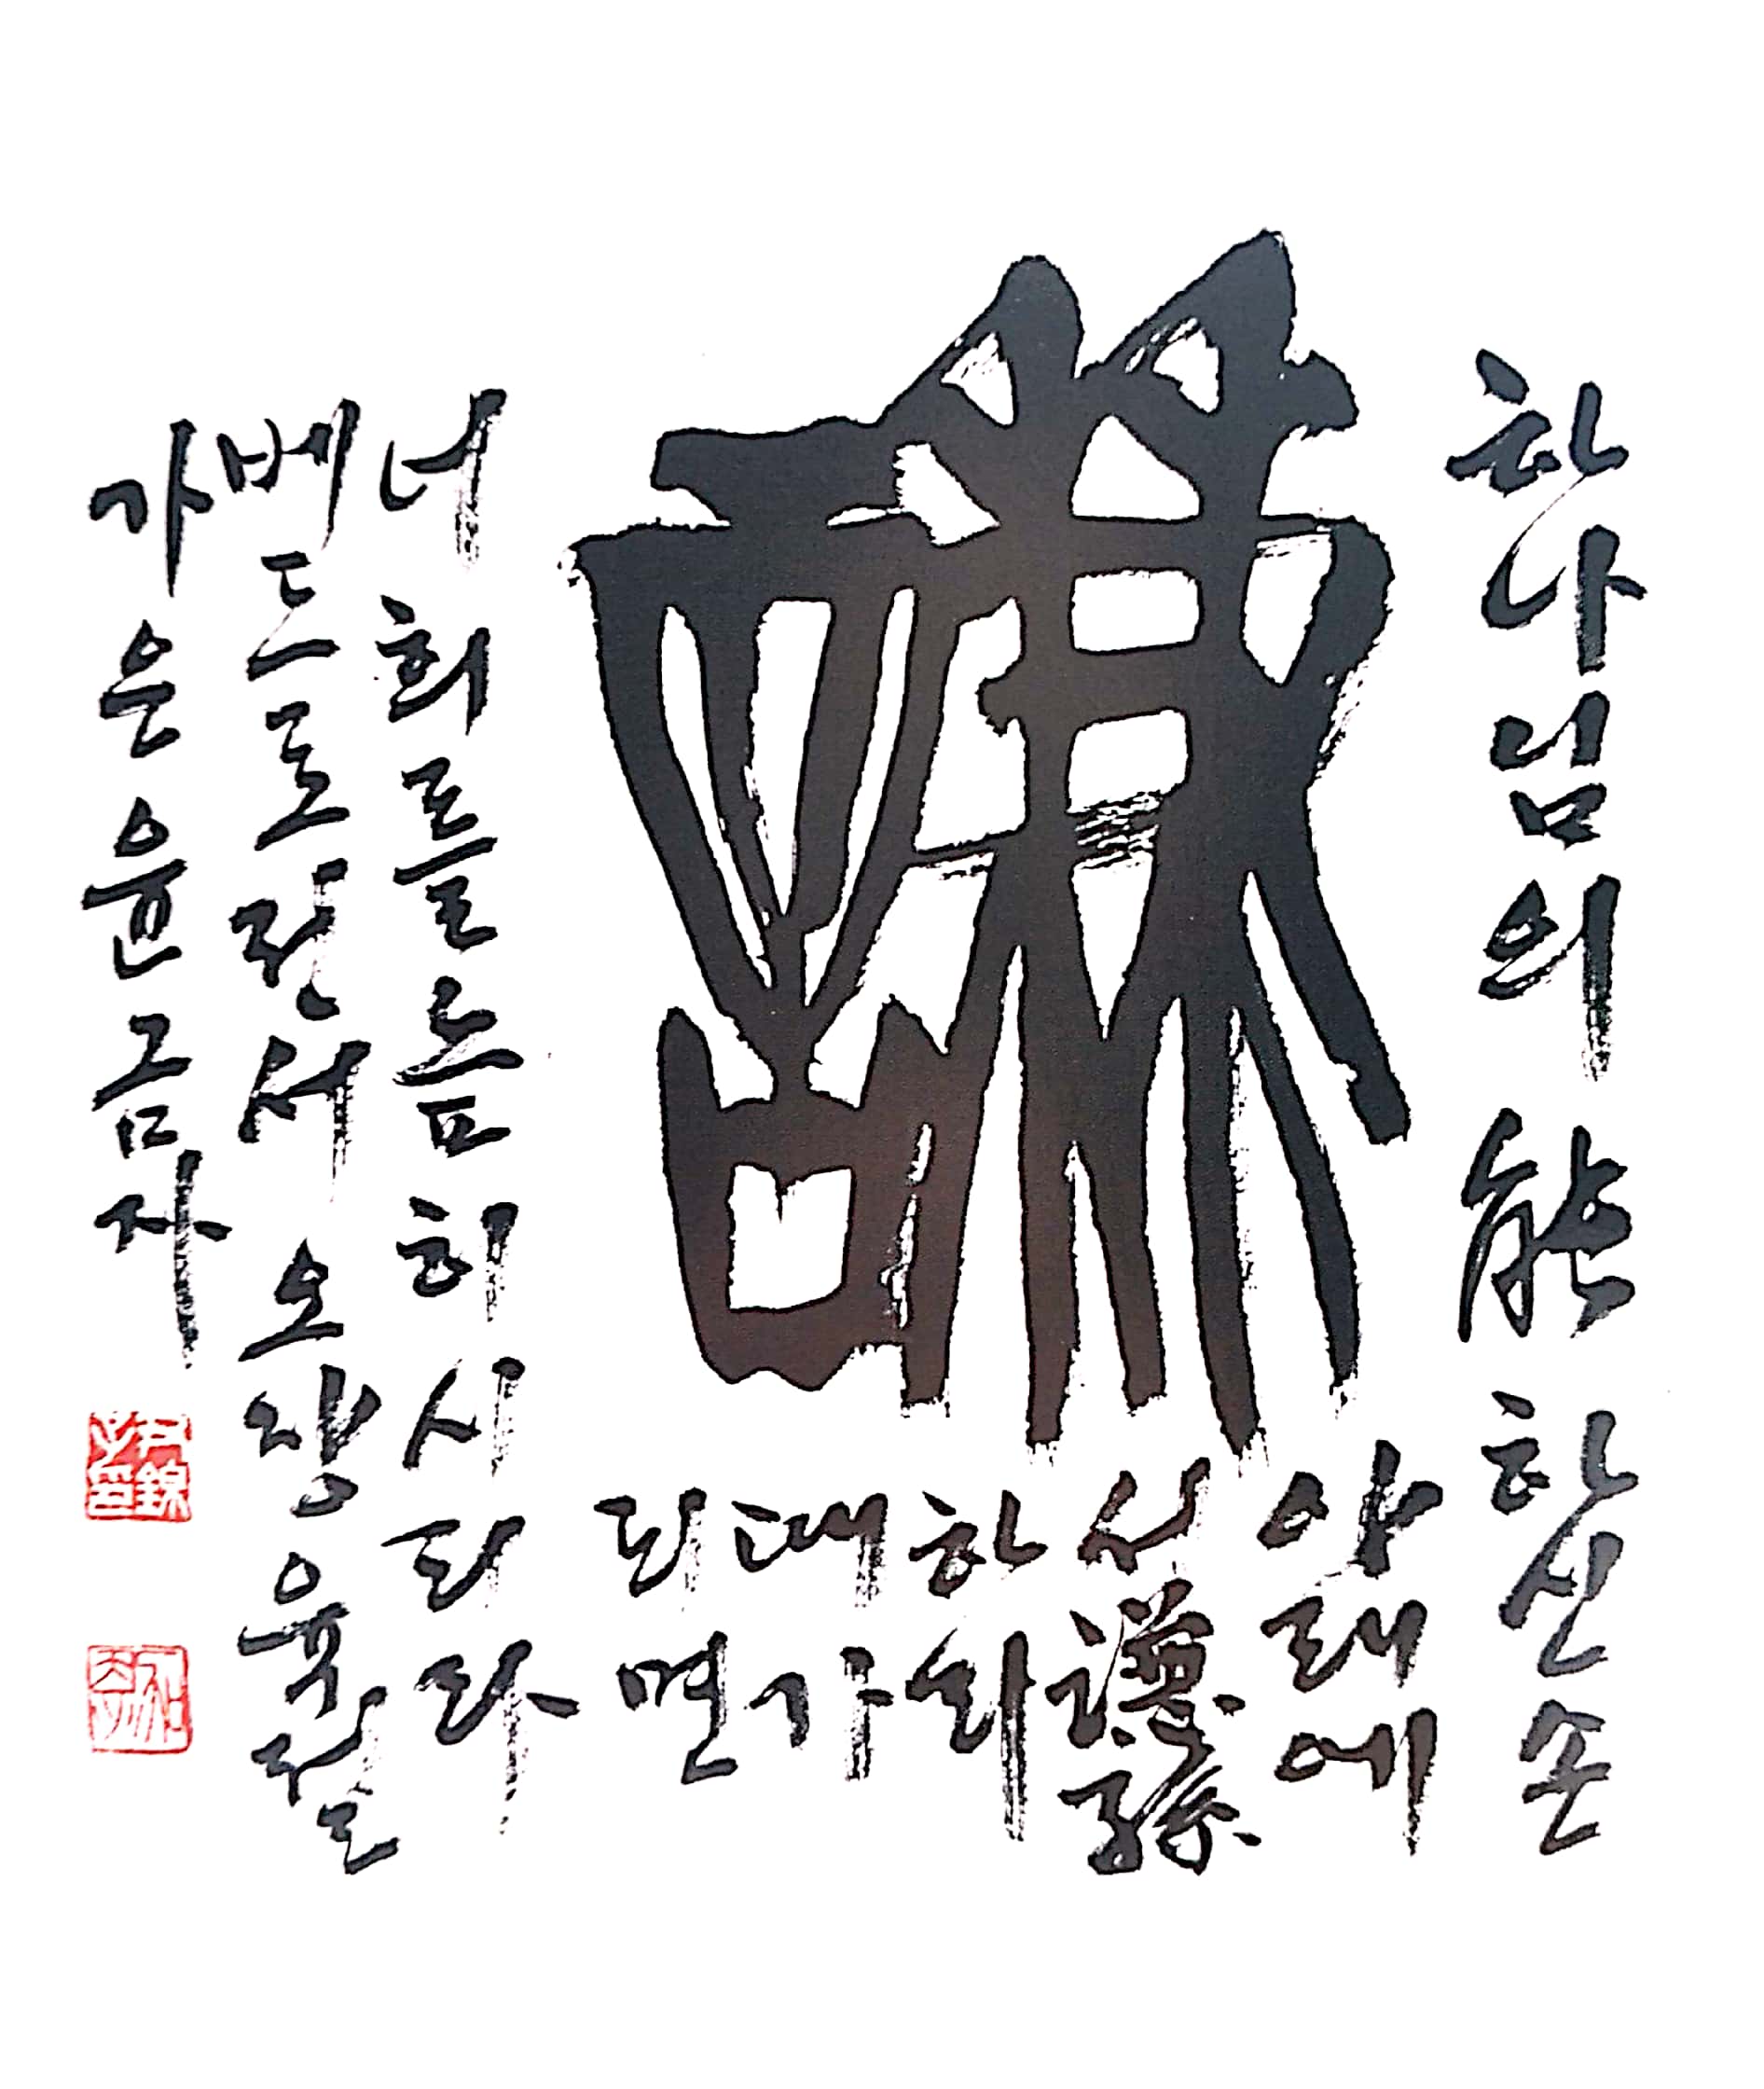 謙
하나님의 能하신 손
아래에
서 謙遜
하라
때가
되면
너희를 높히시리라
베드로전서 오장 육절
가은 윤금자
尹錦子印